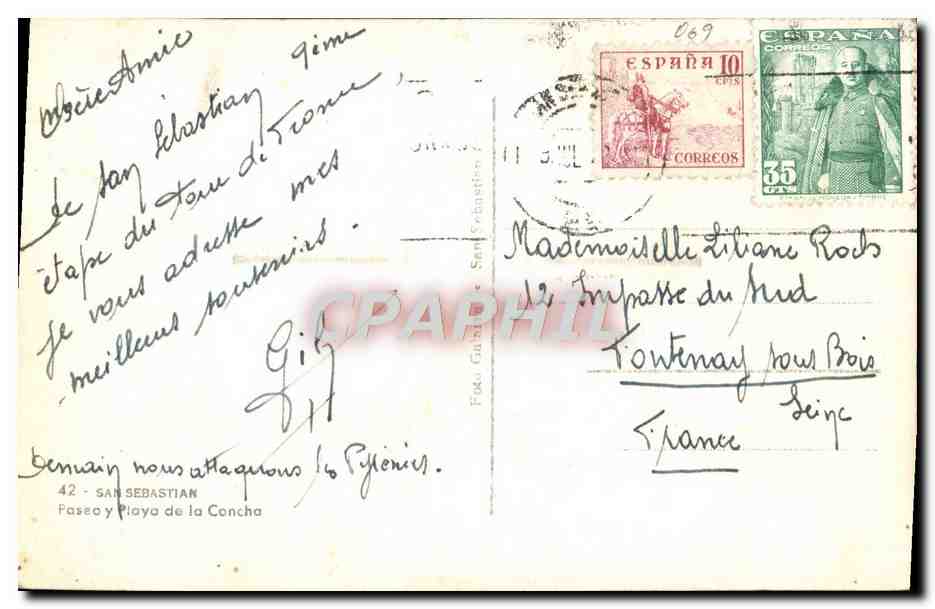 Chère Amie
de San Sébastian 9ème
étape du tour de France
je vous adresse mes
meilleurs souvenirs.
Gil
Demain nous attaquons les Pyrénées.
42 - SAN SEBASTIAN
Paseo y Playa de la Concha
Foto Galarza San Sebastian
069
ESPAÑA 10
CTS
CORREOS
ESPAÑA
CORREOS
35
CTS
JUL
Mademoiselle Liliane Rocks
12 Impasse du Sud
Fontenay sous Bois
Seine
France
CPAPHIL